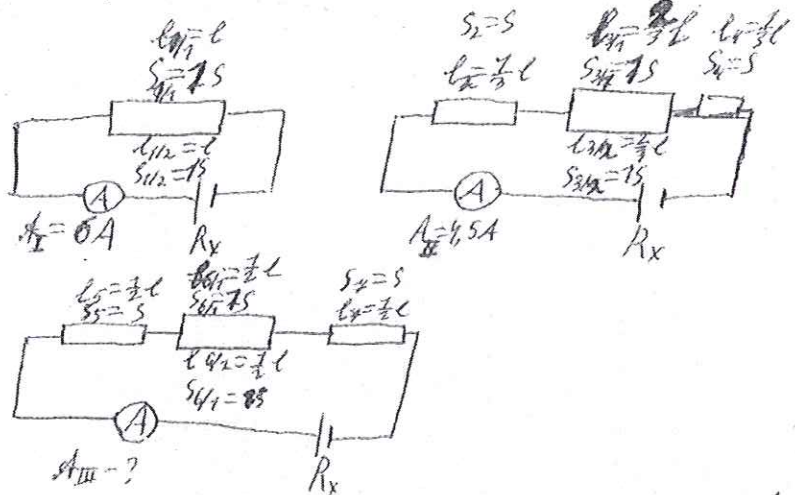 l₁/₁ = l
S₁/₁ = 1S
l₁/₂ = l
S₁/₂ = 1S
A
A_I = 6A
Rx
S₂ = S
l₂ = 1/3 l
l₃/₁ = 2/3 l
S₃/₁ = 1S
l₄ = 1/3 l
S₄ = S
l₃/₂ = 2/3 l
S₃/₂ = 1S
A
A_II = 4,5A
Rx
l₅ = 1/2 l
S₅ = S
l₆/₁ = 1/2 l
S₆/₁ = 1S
S₇ = S
l₇ = 1/2 l
l₆/₂ = 1/2 l
S₆/₁ =
A
A_III - ?
Rx